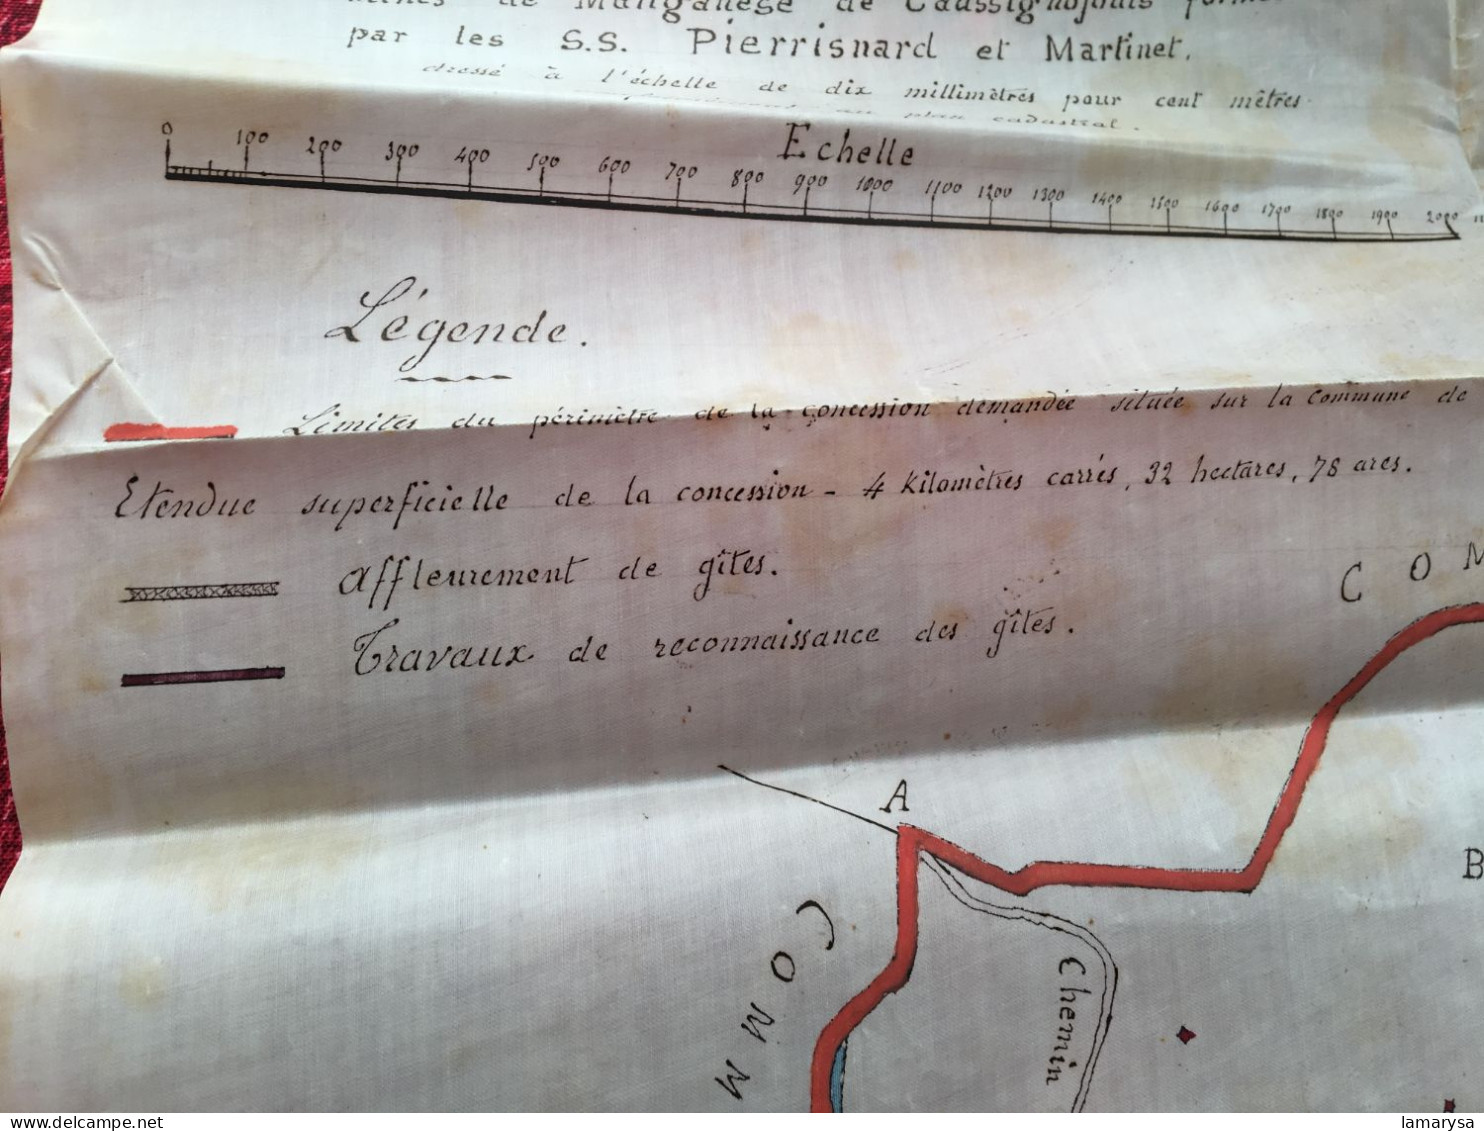 de Manganèse de Caussignojouls
par les S.S. Pierrisnard et Martinet.
dressé à l'échelle de dix millimètres pour cent mètres
au plan cadastral.
Echelle
0 100 200 300 400 500 600 700 800 900 1000 1100 1200 1300 1400 1500 1600 1700 1800 1900 2000 m
Légende.
Limites du périmètre de la concession demandée située sur la Commune de
Etendue superficielle de la concession - 4 kilomètres carrés, 32 hectares, 78 ares.
Affleurement de gîtes.
Travaux de reconnaissance des gîtes.
COM
A
B
COMM
Chemin
lamarysa